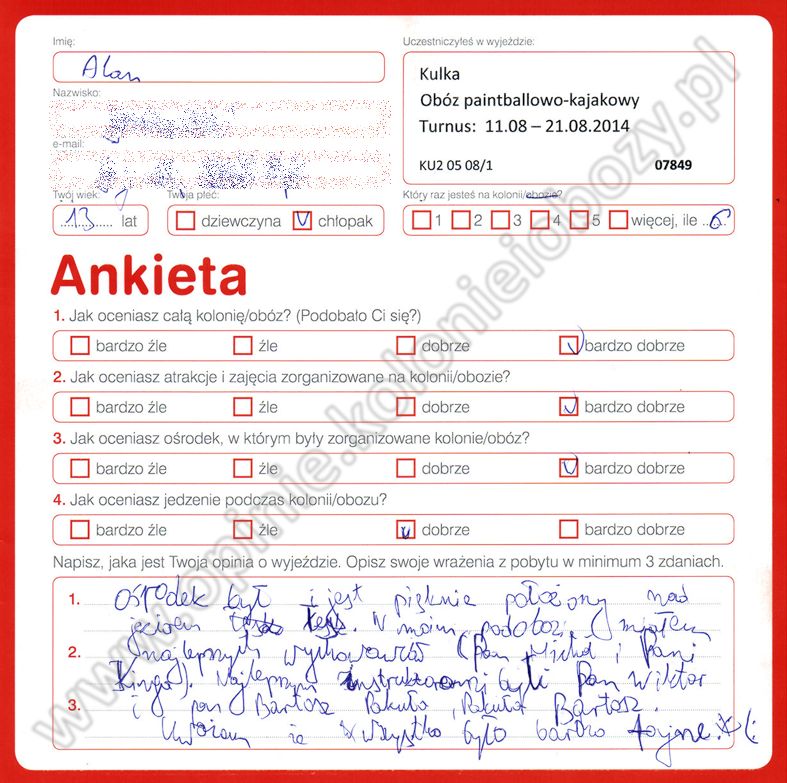 Imię:
Alan
Uczestniczyłeś w wyjeździe:
Kulka
Obóz paintballowo-kajakowy
Turnus: 11.08 – 21.08.2014
KU2 05 08/1 07849
Nazwisko:
e-mail:
Twój wiek:
13 lat
Twoja płeć:
dziewczyna chłopak
Który raz jesteś na kolonii/obozie?
1 2 3 4 5 więcej, ile 6
Ankieta
1. Jak oceniasz całą kolonię/obóz? (Podobało Ci się?)
bardzo źle źle dobrze bardzo dobrze
2. Jak oceniasz atrakcje i zajęcia zorganizowane na kolonii/obozie?
bardzo źle źle dobrze bardzo dobrze
3. Jak oceniasz ośrodek, w którym były zorganizowane kolonie/obóz?
bardzo źle źle dobrze bardzo dobrze
4. Jak oceniasz jedzenie podczas kolonii/obozu?
bardzo źle źle dobrze bardzo dobrze
Napisz, jaka jest Twoja opinia o wyjeździe. Opisz swoje wrażenia z pobytu w minimum 3 zdaniach.
1. Ośrodek był i jest pięknie położony nad
. W moim podobozie miałem
2. najlepszych wychowawców (Pan Michał i Pani
Kinga). Najlepszymi instruktorami byli Pan Wiktor
3. i pan Bartosz Pakuła, Pakuła Bartosz.
Uważam że wszystko było bardzo fajne.
www.opinie.kolonieiobozy.pl